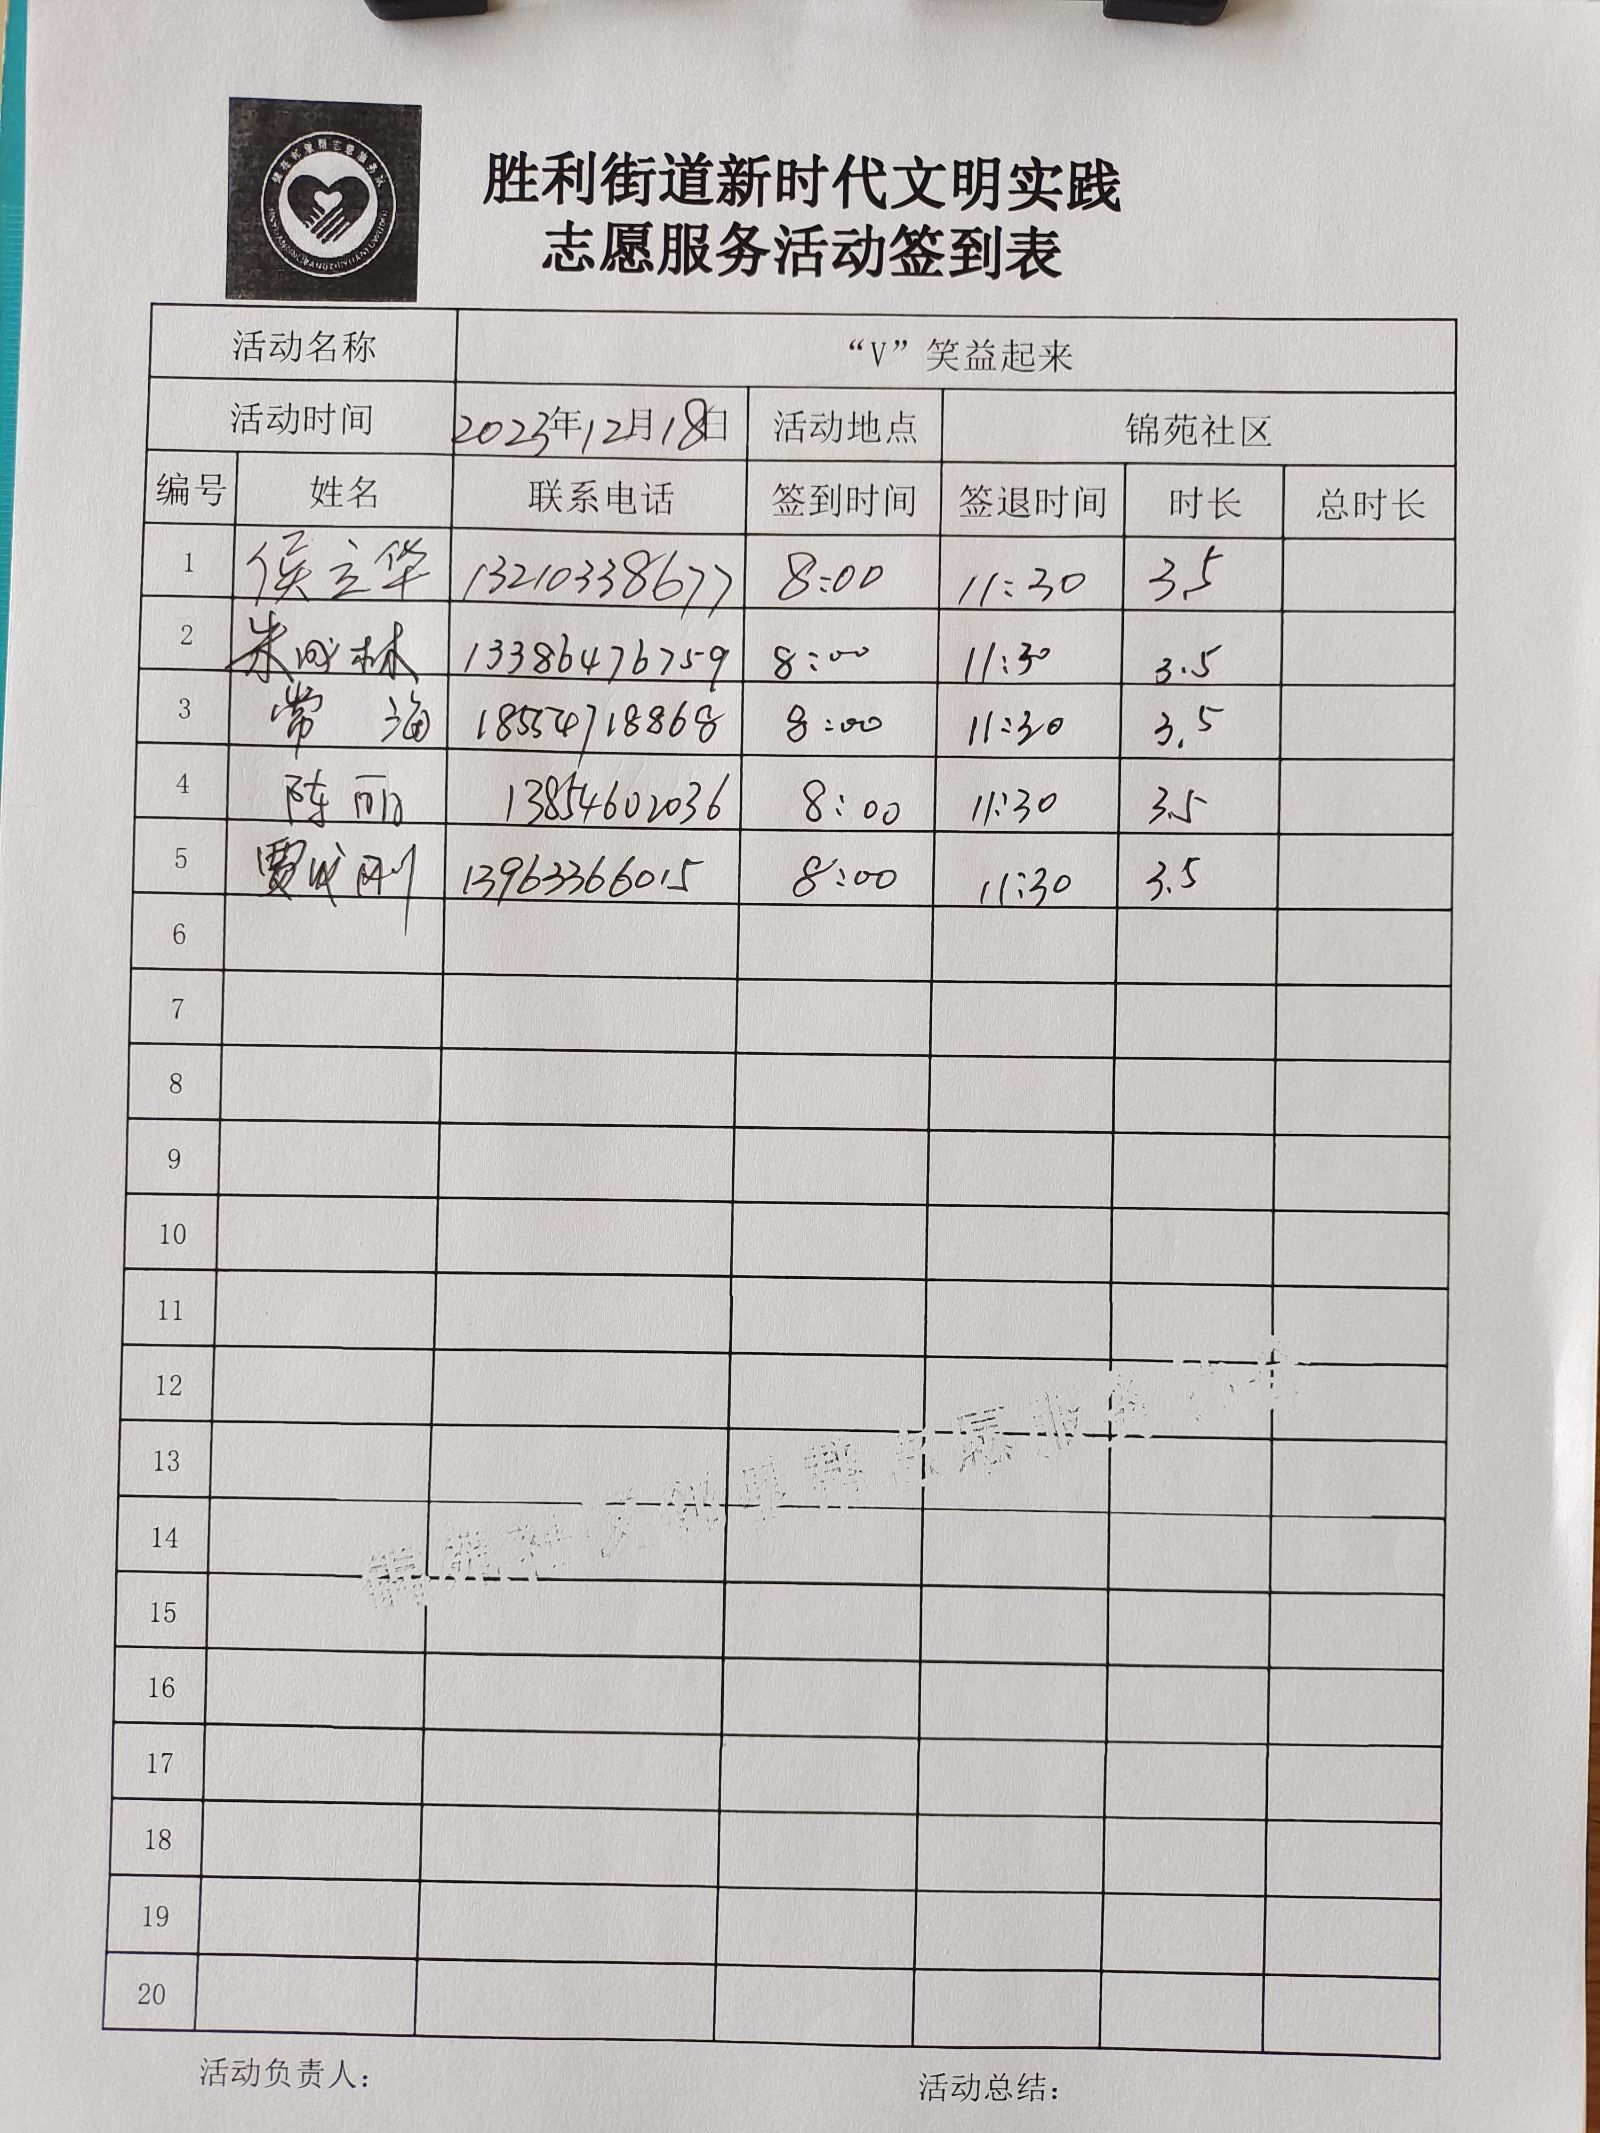 胜利街道新时代文明实践
志愿服务活动签到表
活动名称 “V”笑益起来
活动时间 2023年12月18日 活动地点 锦苑社区
编号 姓名 联系电话 签到时间 签退时间 时长 总时长
1 侯立华 13210338677 8:00 11:30 3.5
2 朱林 13386476759 8:00 11:30 3.5
3 常海 18554718868 8:00 11:30 3.5
4 陈丽 13854602036 8:00 11:30 3.5
5 贾成刚 13963366015 8:00 11:30 3.5
6
7
8
9
10
11
12
13
14
15
16
17
18
19
20
活动负责人： 活动总结：